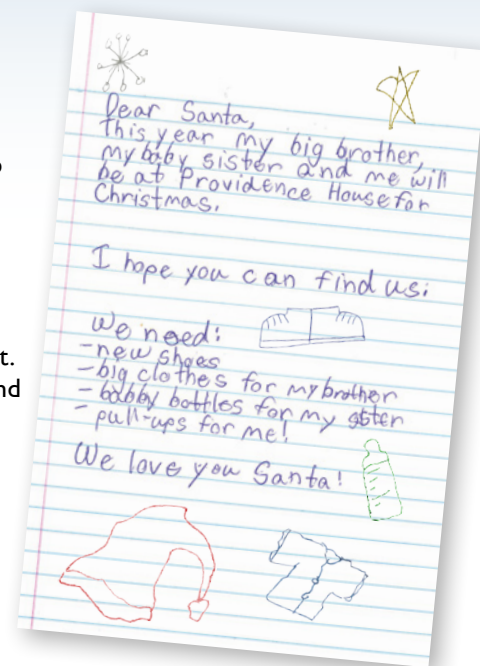 Dear Santa,
This year my big brother,
my baby sister and me will
be at Providence House for
Christmas.
I hope you can find us.
We need:
-new shoes
-big clothes for my brother
-babby bottles for my sister
- pull-ups for me!
We love you Santa!
t.
nd